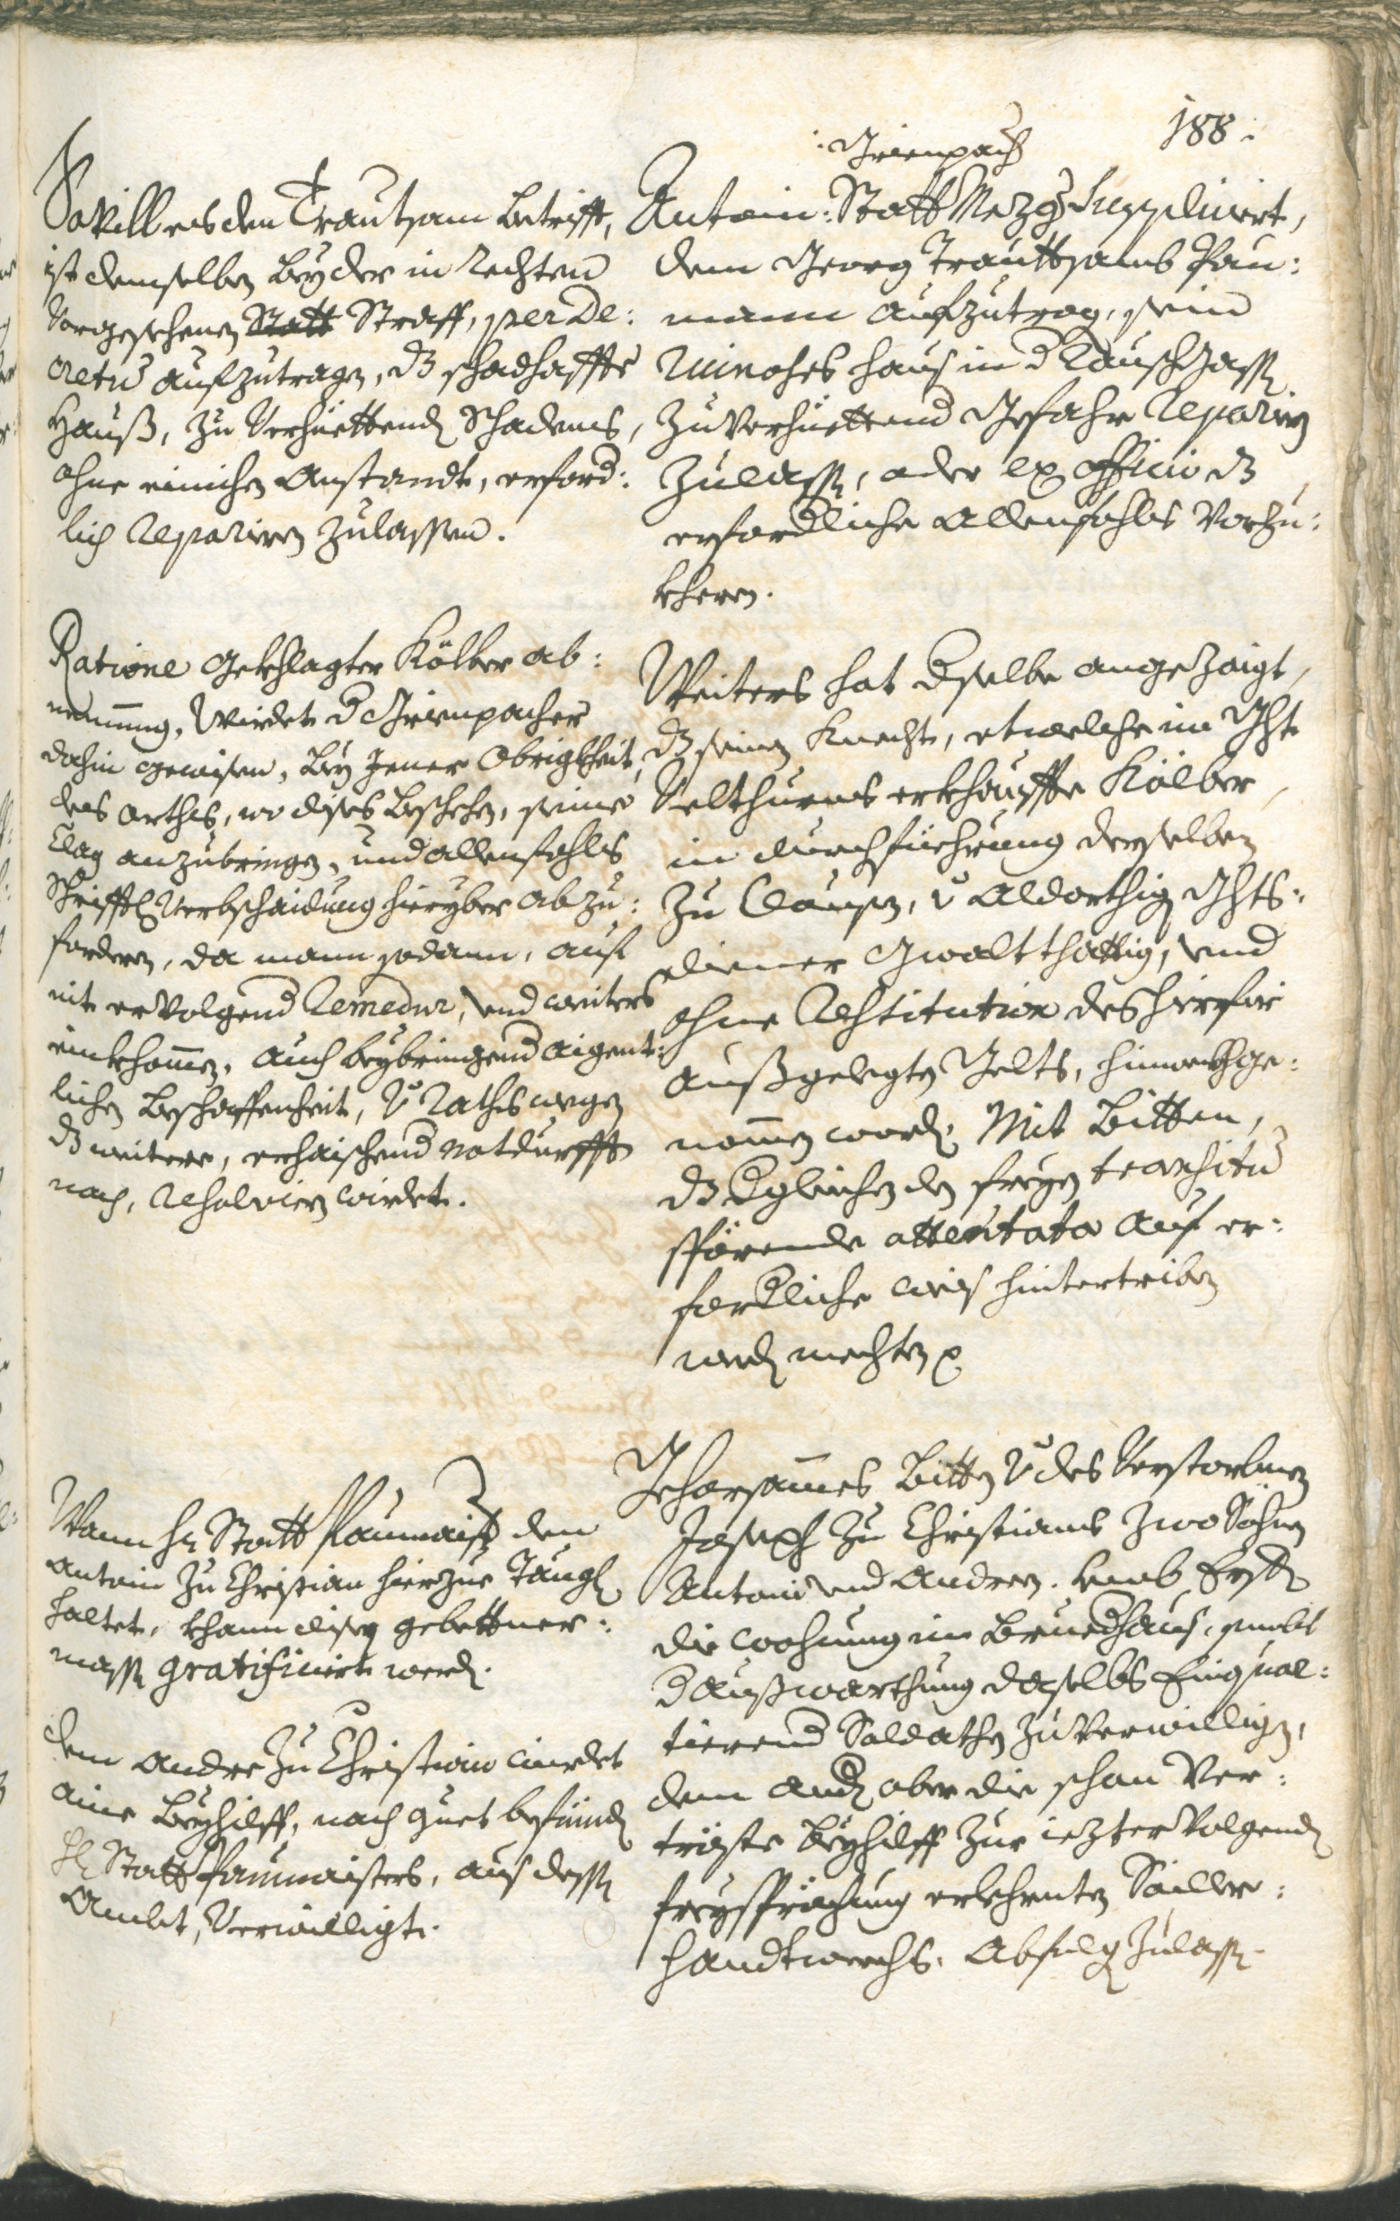 188.
Sovill es den Trautsam betrifft,
ist demselben bey der in Rechten
vorgesehenen Statt Straff, per De:
cretu aufzutragen, dz schadhaffte
Hauß, zu verhüettends Schadens,
ohne einichen Anstandt, erford:
lich reparirn zulassen.
Ratione geklagter Kölber ab:
nemung, wirdet d Grienpacher
dahin gewisen, bey jener Obrigkheit,
des Orths, wo dises beschehen, seine
Clag anzubringen, und allenfahls
schrifftl Verbschaidung hieryber abzu:
fordern, da mann sodann, auf
nit ervolgend Remedur, und weiters
einkhomen, auch beybringend aigent:
lichen Beschaffenheit, v Raths wegen
dz weitere, erhaischend notdurfft
nach, resolvirn wirdet.
Wann H Statt Paumaistr den
Antoni zu Christian hierzue taugl
haltet, khann disem gebettner:
massen gratificirt werden.
Dem Andre zu Christian wirdet
aine Beyhilff, nach guet befünden
H Statt Paumaisters, aus dessen
Ambt, verwilligt.
: Grienpach
Antoni: Statt Mezger supplicirt,
dem Georg Trauttsambs Pau:
mann aufzutragen, sein
ruinoses Haus in d Rauschgassen
zu verhüettend Gefahr reparirn
zulassen, oder ex officio dz
erfordliche allenfahls vorzu:
kheren.
Weiters hat dselbe angezaigt,
dz seinen Knecht, etwelche im Ght
Velthurns erkhauffte Kölber,
in durchfüehrung derselben
zu Clausen, v aldorthigen Ghts:
diener gwaltthättig, und
ohne Restitution des hierfür
außgelegten Gelts, hinwekhge:
nomen worden. Mit Bitten,
dz dgleichen den freyen transitu
störende attentata auf er:
forderliche weis hintertriben
werden mechten
Gehorsames Bitten v des verstorbnen
Joseph zu Christians zwo Söhnen
Antoni und Andreen. umb Ersten
die Wohnung im Bruedhaus, sambt
d Außwarthung daselbs Einquar:
tierend Soldathen zu verwilligen,
dem andern aber die schon ver:
tröste Beyhilff zur iezt ervolgenden
freysprechung erlehrnten Sailler:
handtwerchs, abfolgen zulassen.